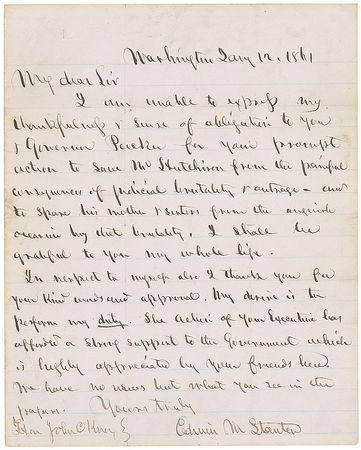 Washington Jany 12. 1861
My dear Sir
I am unable to express my
thankfulness & sense of obligation to you
& Governor Packer for your prompt
action to save Mr Hutchison from the painful
consequences of judicial brutality & outrage – and
to spare his mother & sisters from the anguish
occasion by that brutality. I shall be
grateful to you my whole life.
In respect to myself also I thank you for
your kind words and approval. My desire is to
perform my duty. The action of your Executive has
afforded a strong support to the Government which
is highly appreciated by your friends here.
We have no news but what you see in the
papers. Yours truly
Hon John C
Edwin M Stanton